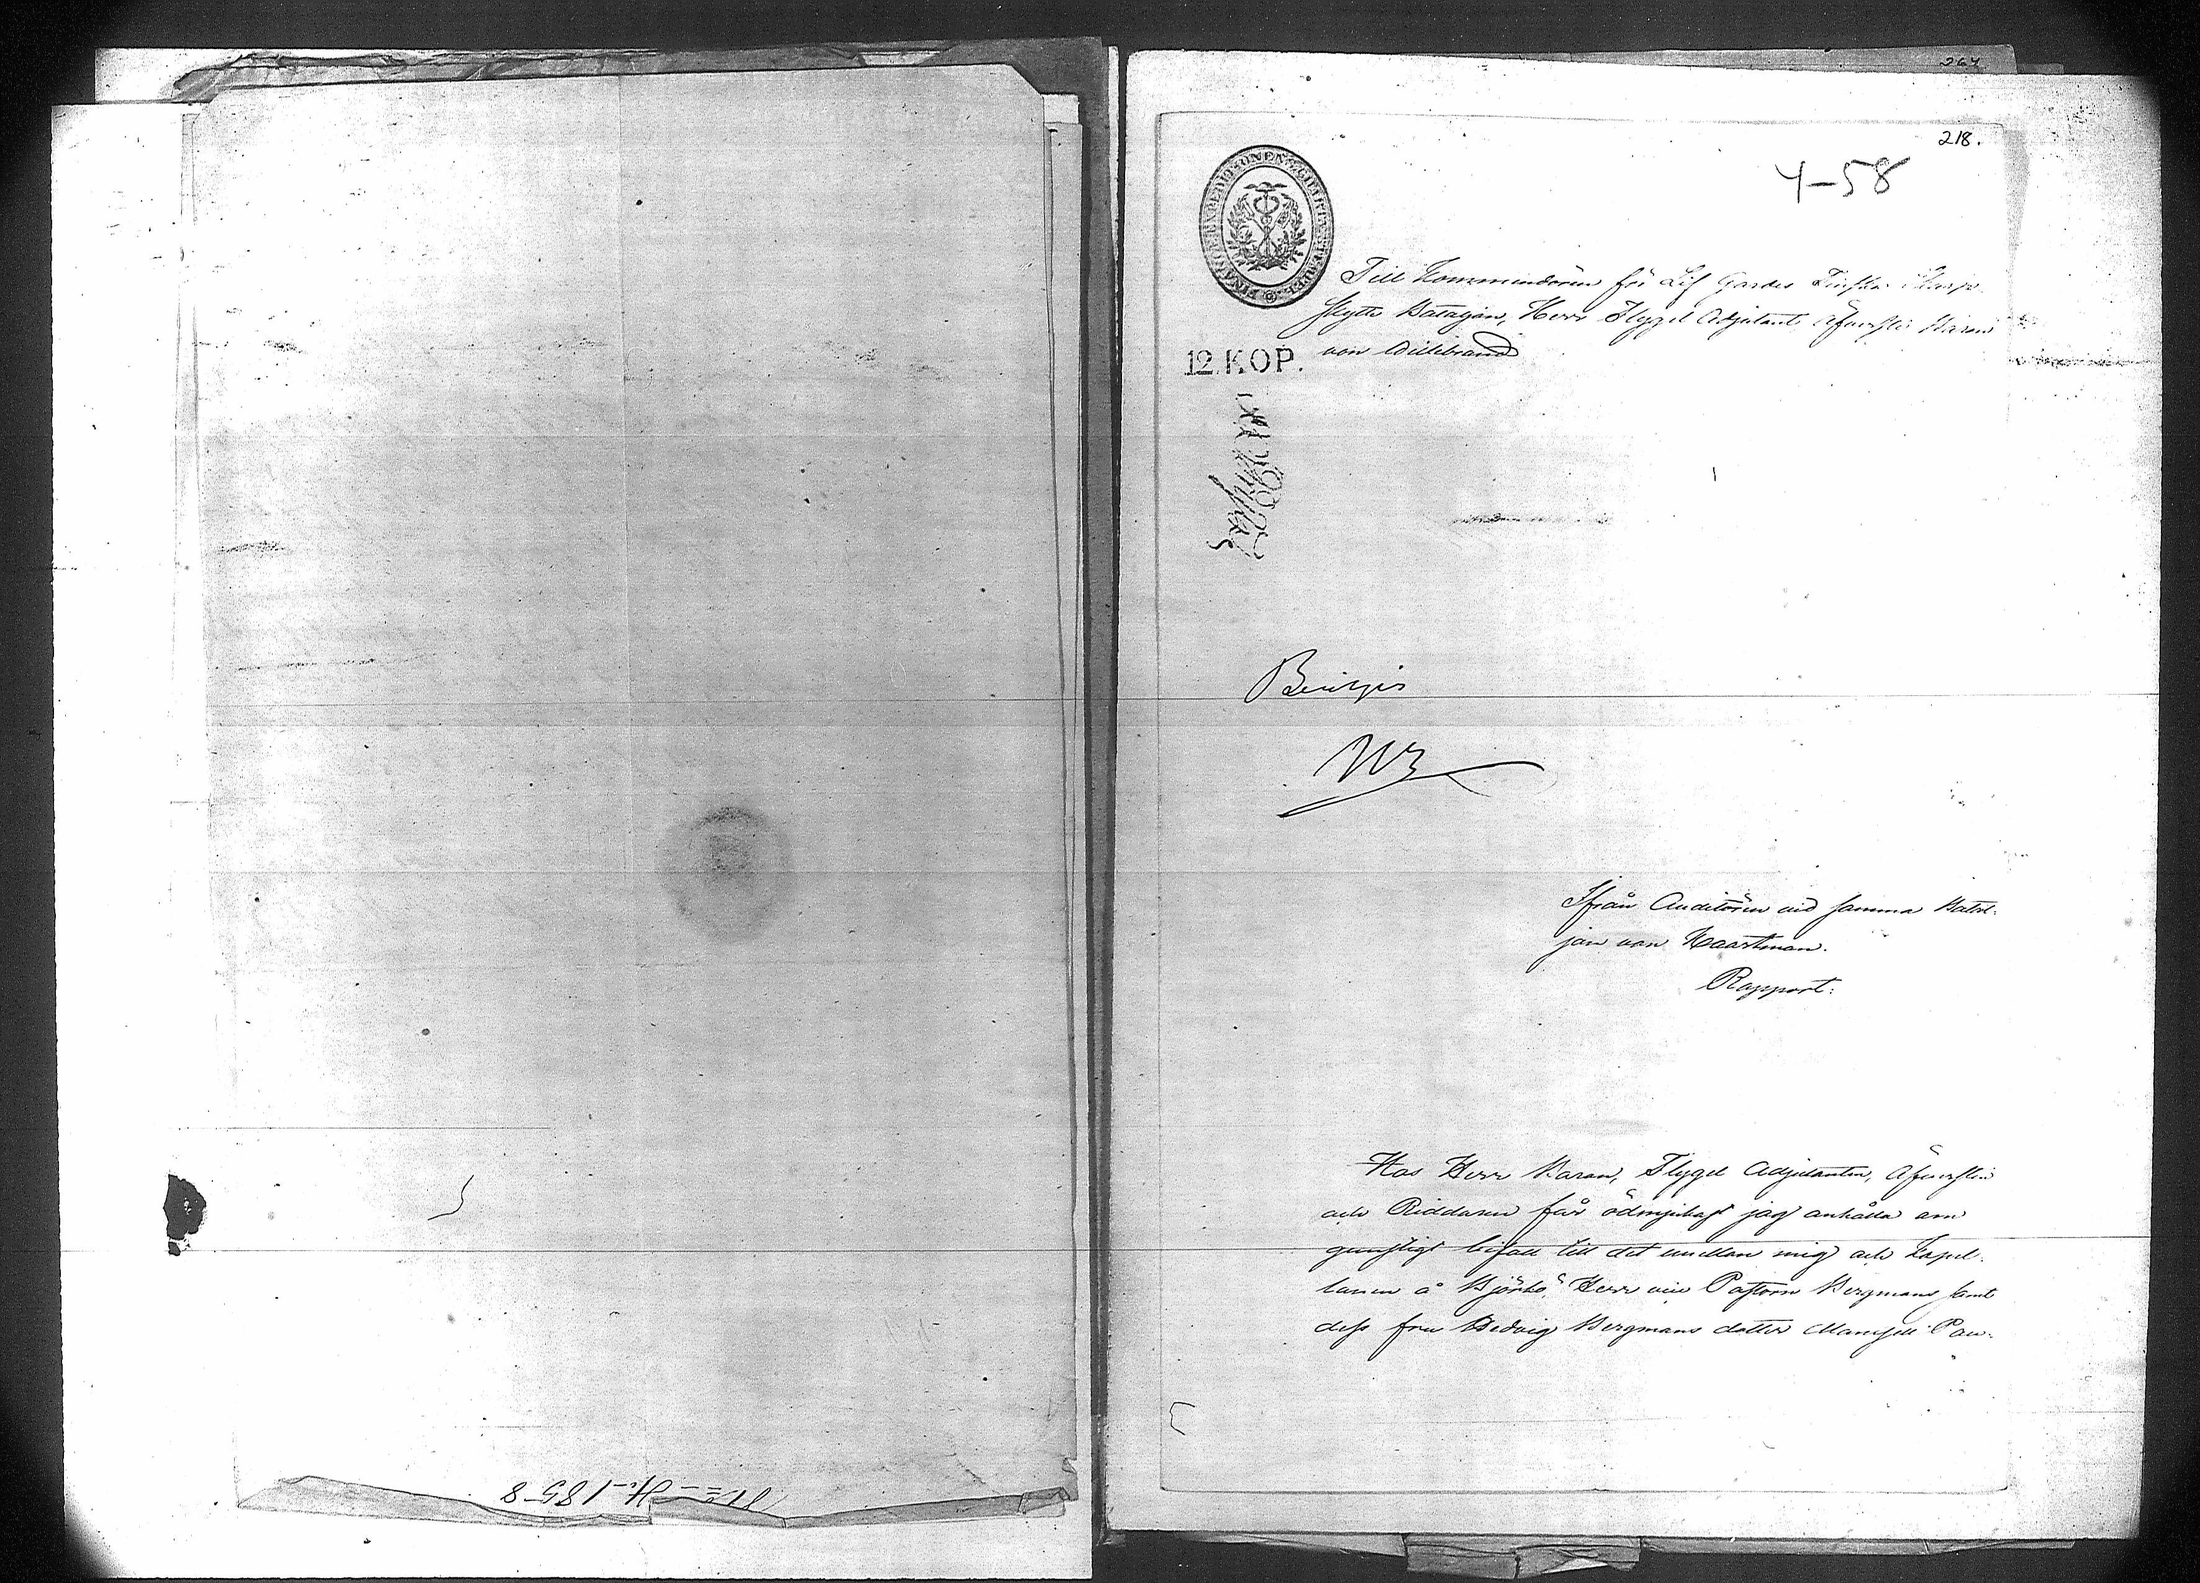 264
218.
4-58
12. KOP.
Till Kommendören för Lif Gardes Finska Skarp-
skytte Bataljon, Herr Flygel Adjutant Öfversten Baron
von Willebrand
Beviljes
Ifrån Auditören vid samma Batal-
jon von Haartman.
Rapport:
Hos Herr Baron, Flygel Adjutanten, Öfversten
och Riddaren får ödmjukast jag anhålla om
gunstigt bifall till det emellan mig och Kapel-
lanen å Björkö, Herr vice Pastorn Bergmans samt
dess fru Hedvig Bergmans dotter Mamsell Pau-
1858